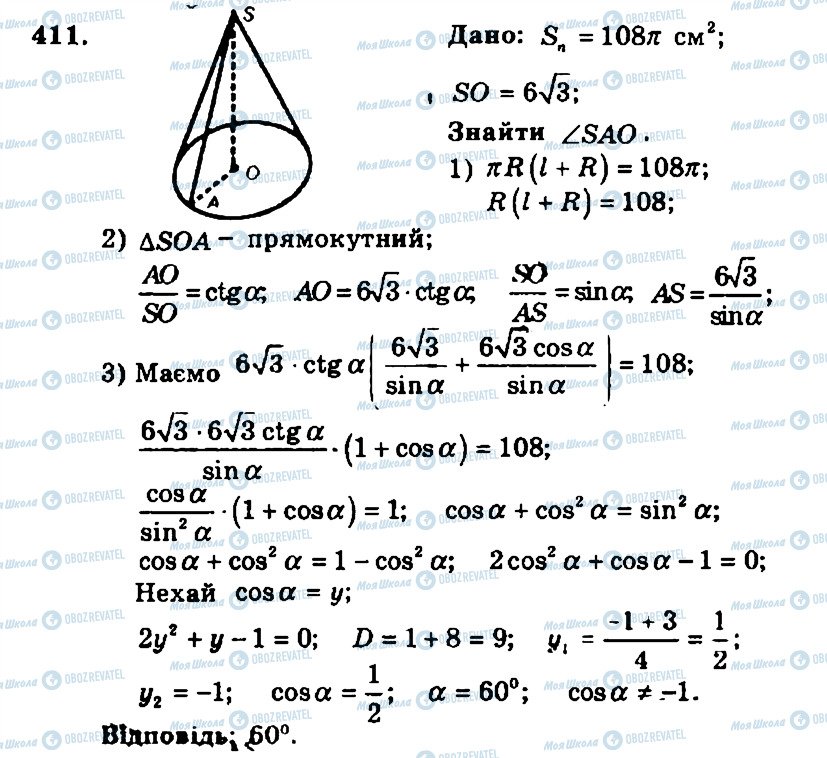 411.
S
O
A
Дано: Sₙ = 108π см²;
SO = 6√3;
Знайти ∠SAO.
1) πR(l + R) = 108π;
R(l + R) = 108;
2) △SOA – прямокутний;
AO/SO = ctgα; AO = 6√3 · ctgα; SO/AS = sinα; AS = 6√3/sinα;
3) Маємо 6√3 · ctgα(6√3/sinα + 6√3 cosα/sinα) = 108;
6√3 · 6√3 ctgα/sinα · (1 + cosα) = 108;
cosα/sin²α · (1 + cosα) = 1; cosα + cos²α = sin²α;
cosα + cos²α = 1 – cos²α; 2cos²α + cosα – 1 = 0;
Нехай cosα = y;
2y² + y – 1 = 0; D = 1 + 8 = 9; y₁ = (–1 + 3)/4 = 1/2;
y₂ = –1; cosα = 1/2; α = 60°; cosα ≠ –1.
Відповідь: 60°.
Моя Школа OBOZREVATEL